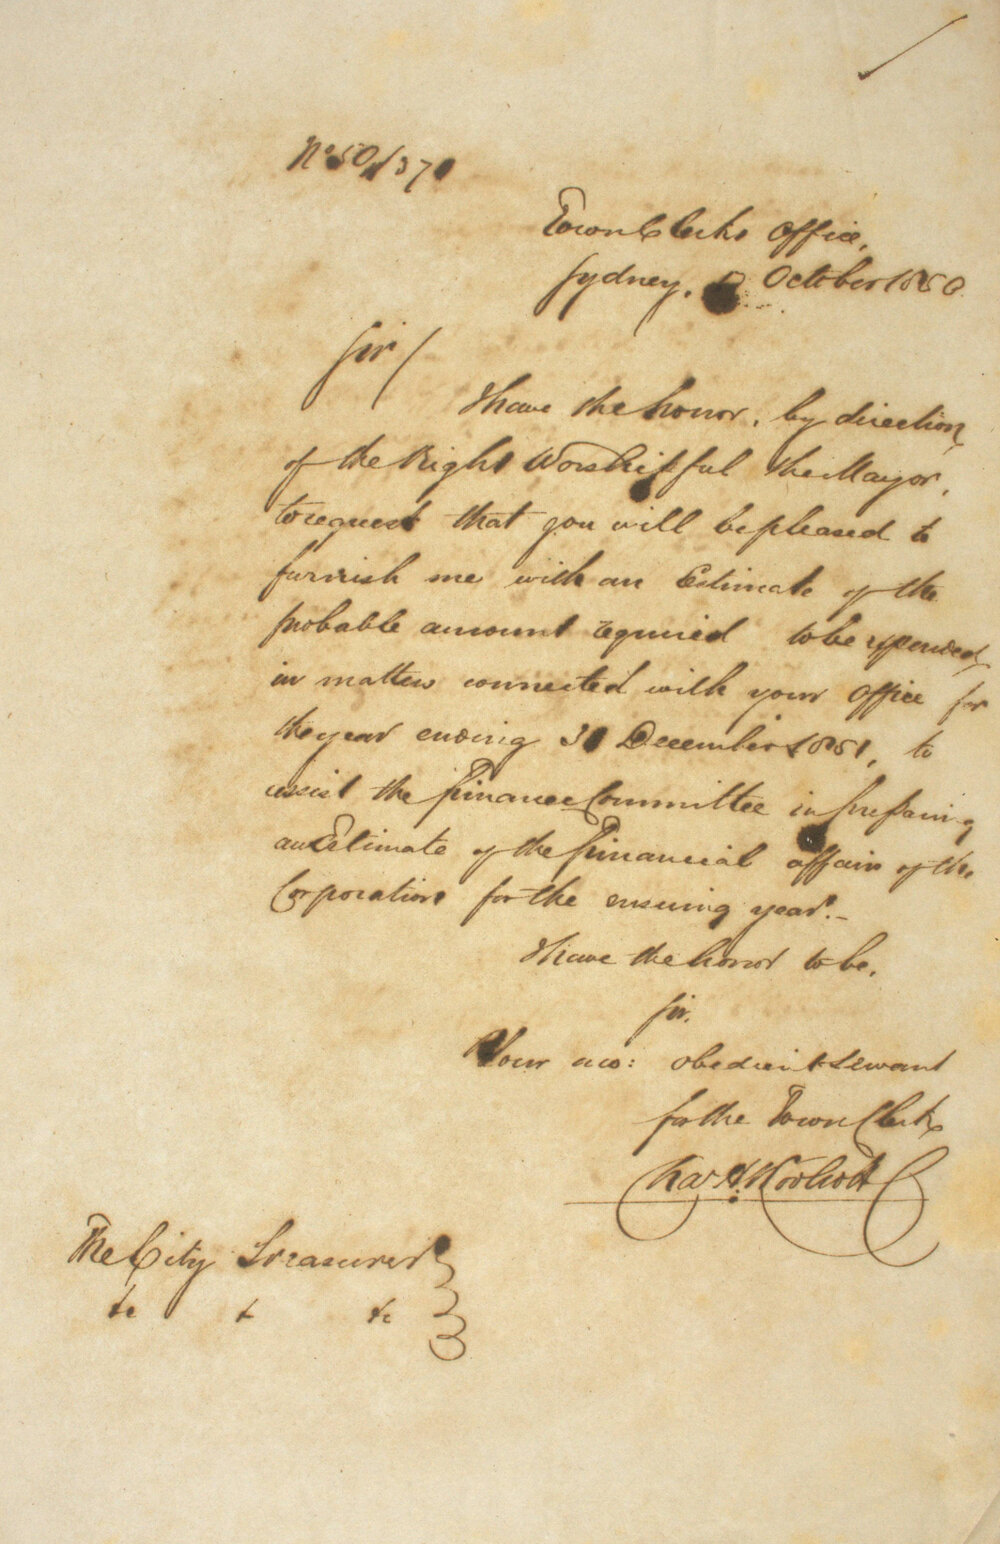 No 50/370
Town Clerks Office,
Sydney. October 1850
Sir/
I have the honor, by direction,
of the Right Worshipful the Mayor,
to request that you will be pleased to
furnish me with an Estimate of the
probable amount required to be expended
in matters connected with your Office for
the year ending 31 December 1851, to
assist the Finance Committee in preparing
an Estimate of the Financial affairs of the
Corporation for the ensuing year.-
I have the honor to be,
Sir.
Your mo: obedient Servant
for the Town Clerk
Chas H. Woolcott
The City Treasurer
&c & &c